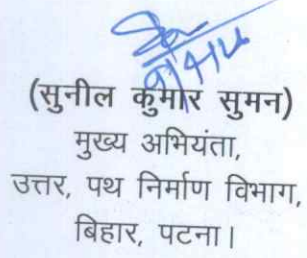 (सुनील कुमार सुमन)
मुख्य अभियंता,
उत्तर, पथ निर्माण विभाग,
बिहार, पटना।